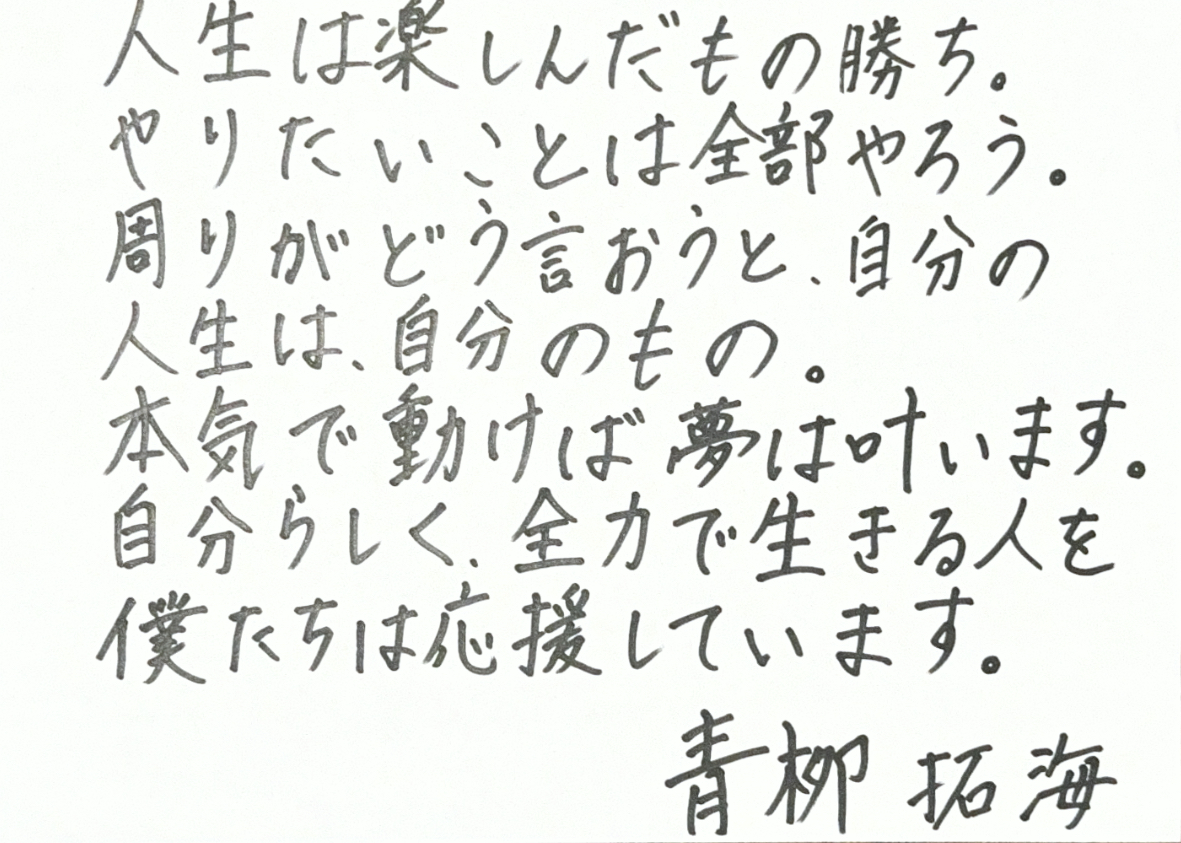 人生は楽しんだもの勝ち。
やりたいことは全部やろう。
周りがどう言おうと、自分の
人生は、自分のもの。
本気で動けば夢は叶います。
自分らしく、全力で生きる人を
僕たちは応援しています。
青柳 拓海